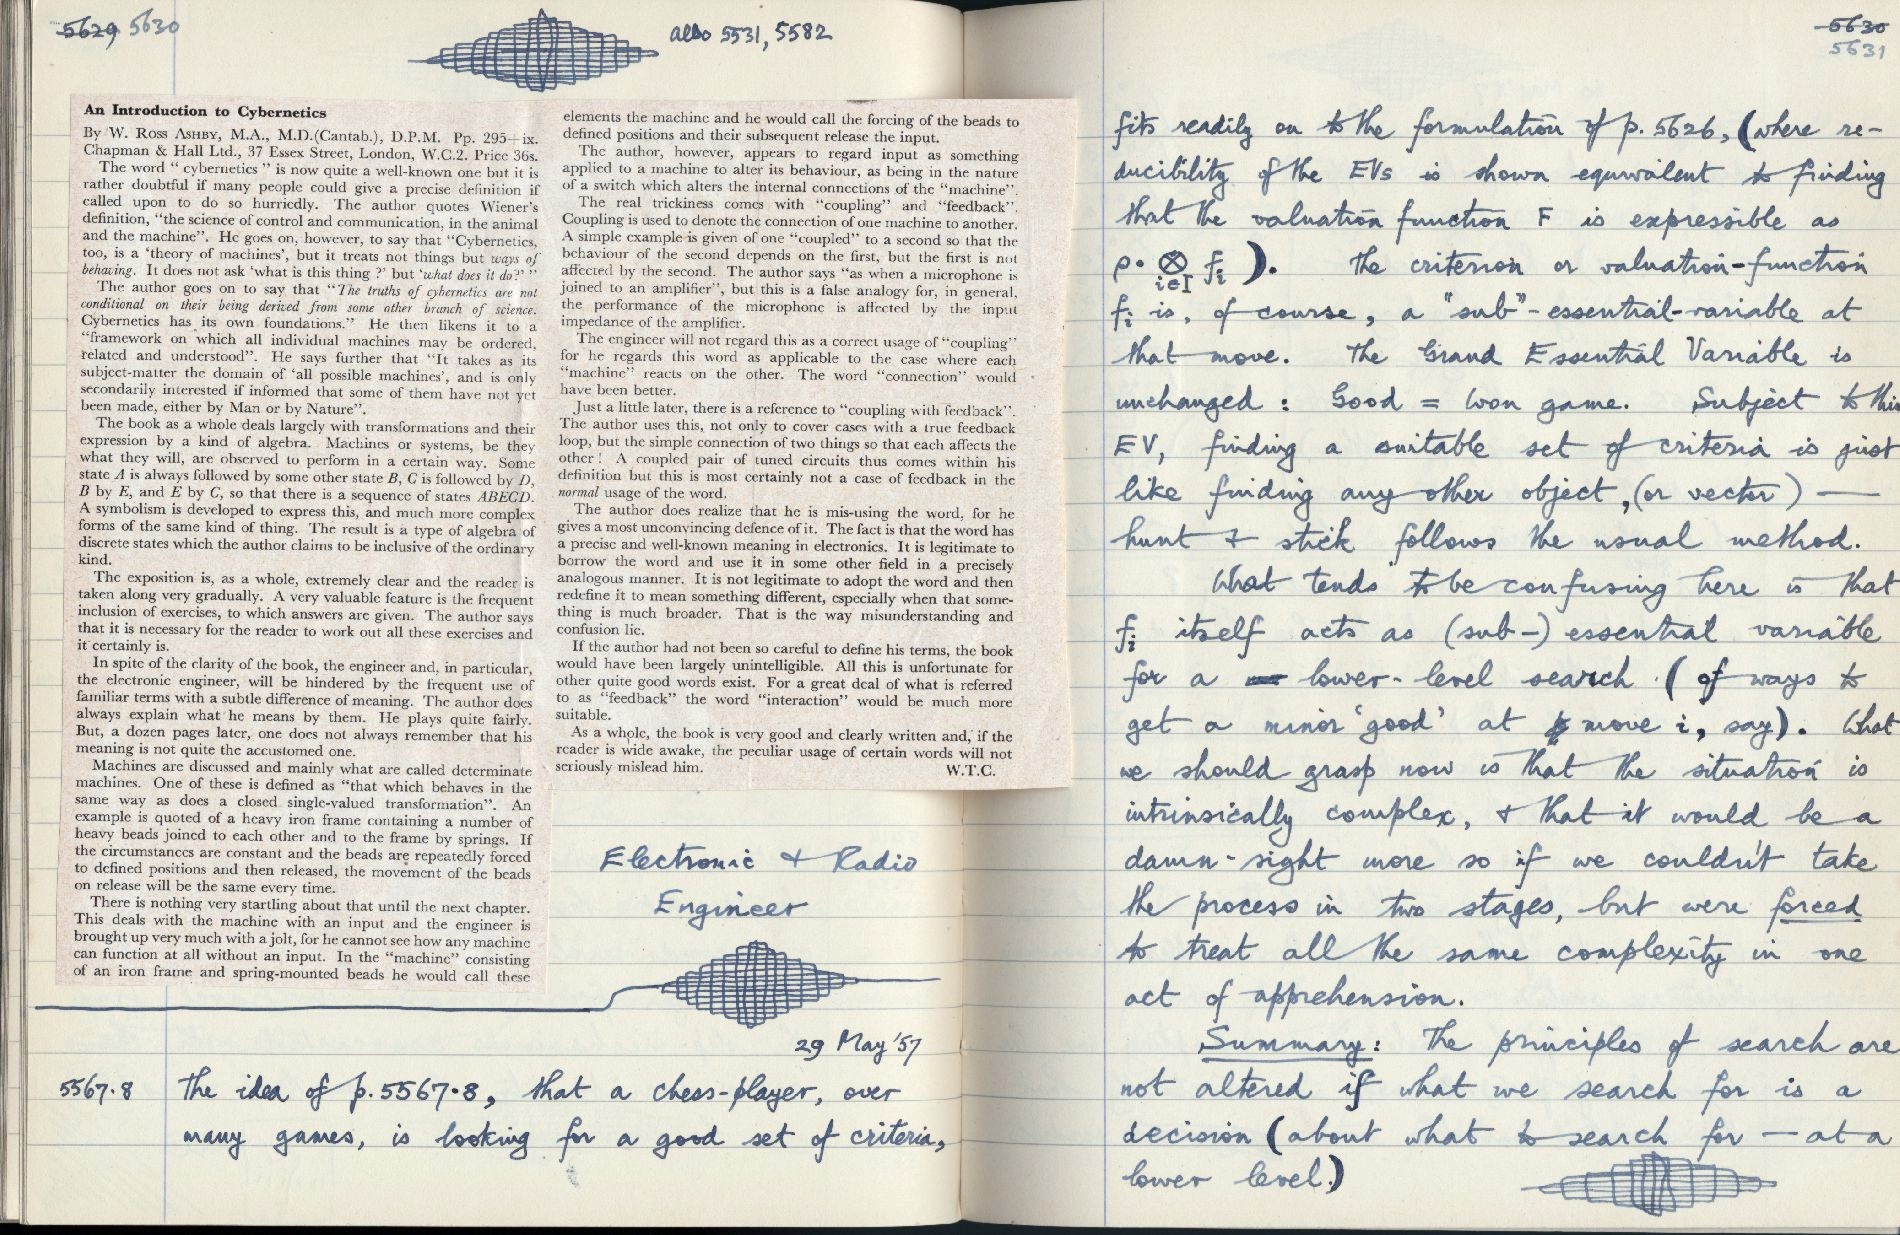 5629 5630
also 5531, 5582
An Introduction to Cybernetics
By W. Ross Ashby, M.A., M.D.(Cantab.), D.P.M. Pp. 295+ix.
Chapman & Hall Ltd., 37 Essex Street, London, W.C.2. Price 36s.
The word “ cybernetics ” is now quite a well-known one but it is
rather doubtful if many people could give a precise definition if
called upon to do so hurriedly. The author quotes Wiener's
definition, “the science of control and communication, in the animal
and the machine”. He goes on, however, to say that “Cybernetics,
too, is a ‘theory of machines’, but it treats not things but ways of
behaving. It does not ask ‘what is this thing ?’ but ‘what does it do?’ ”
The author goes on to say that “The truths of cybernetics are not
conditional on their being derived from some other branch of science.
Cybernetics has its own foundations.” He then likens it to a
“framework on which all individual machines may be ordered,
related and understood”. He says further that “It takes as its
subject-matter the domain of ‘all possible machines’, and is only
secondarily interested if informed that some of them have not yet
been made, either by Man or by Nature”.
The book as a whole deals largely with transformations and their
expression by a kind of algebra. Machines or systems, be they
what they will, are observed to perform in a certain way. Some
state A is always followed by some other state B, C is followed by D,
B by E, and E by C, so that there is a sequence of states ABECD.
A symbolism is developed to express this, and much more complex
forms of the same kind of thing. The result is a type of algebra of
discrete states which the author claims to be inclusive of the ordinary
kind.
The exposition is, as a whole, extremely clear and the reader is
taken along very gradually. A very valuable feature is the frequent
inclusion of exercises, to which answers are given. The author says
that it is necessary for the reader to work out all these exercises and
it certainly is.
In spite of the clarity of the book, the engineer and, in particular,
the electronic engineer, will be hindered by the frequent use of
familiar terms with a subtle difference of meaning. The author does
always explain what he means by them. He plays quite fairly.
But, a dozen pages later, one does not always remember that his
meaning is not quite the accustomed one.
Machines are discussed and mainly what are called determinate
machines. One of these is defined as “that which behaves in the
same way as does a closed single-valued transformation”. An
example is quoted of a heavy iron frame containing a number of
heavy beads joined to each other and to the frame by springs. If
the circumstances are constant and the beads are repeatedly forced
to defined positions and then released, the movement of the beads
on release will be the same every time.
There is nothing very startling about that until the next chapter.
This deals with the machine with an input and the engineer is
brought up very much with a jolt, for he cannot see how any machine
can function at all without an input. In the “machine” consisting
of an iron frame and spring-mounted beads he would call these
elements the machine and he would call the forcing of the beads to
defined positions and their subsequent release the input.
The author, however, appears to regard input as something
applied to a machine to alter its behaviour, as being in the nature
of a switch which alters the internal connections of the “machine”.
The real trickiness comes with “coupling” and “feedback”.
Coupling is used to denote the connection of one machine to another.
A simple example is given of one “coupled” to a second so that the
behaviour of the second depends on the first, but the first is not
affected by the second. The author says “as when a microphone is
joined to an amplifier”, but this is a false analogy for, in general,
the performance of the microphone is affected by the input
impedance of the amplifier.
The engineer will not regard this as a correct usage of “coupling”
for he regards this word as applicable to the case where each
“machine” reacts on the other. The word “connection” would
have been better.
Just a little later, there is a reference to “coupling with feedback”.
The author uses this, not only to cover cases with a true feedback
loop, but the simple connection of two things so that each affects the
other ! A coupled pair of tuned circuits thus comes within his
definition but this is most certainly not a case of feedback in the
normal usage of the word.
The author does realize that he is mis-using the word, for he
gives a most unconvincing defence of it. The fact is that the word has
a precise and well-known meaning in electronics. It is legitimate to
borrow the word and use it in some other field in a precisely
analogous manner. It is not legitimate to adopt the word and then
redefine it to mean something different, especially when that some-
thing is much broader. That is the way misunderstanding and
confusion lie.
If the author had not been so careful to define his terms, the book
would have been largely unintelligible. All this is unfortunate for
other quite good words exist. For a great deal of what is referred
to as “feedback” the word “interaction” would be much more
suitable.
As a whole, the book is very good and clearly written and, if the
reader is wide awake, the peculiar usage of certain words will not
seriously mislead him. W.T.C.
Electronic & Radio
Engineer
29 May '57
5567.8 The idea of p.5567.8, that a chess-player, over
many games, is looking for a good set of criteria,
5630
5631
fits readily on to the formulation of p. 5626, (where re-
ducibility of the EVs is shown equivalent to finding
that the valuation function F is expressible as
ρ. ⊗ fi ). The criterion or valuation-function
i∈I
fi is, of course, a "sub"-essential-variable at
that move. The Grand Essential Variable is
unchanged : Good = Won game. Subject to this
EV, finding a suitable set of criteria is just
like finding any other object, (or vector) —
hunt & stick follows the usual method.
What tends to be confusing here is that
fi itself acts as (sub-) essential variable
for a lower-level search (of ways to
get a minor 'good' at move i, say). What
we should grasp now is that the situation is
intrinsically complex, & that it would be a
damn-sight more so if we couldn't take
the process in two stages, but were forced
to treat all the same complexity in one
act of apprehension.
Summary: The principles of search are
not altered if what we search for is a
decision (about what to search for — at a
lower level.)